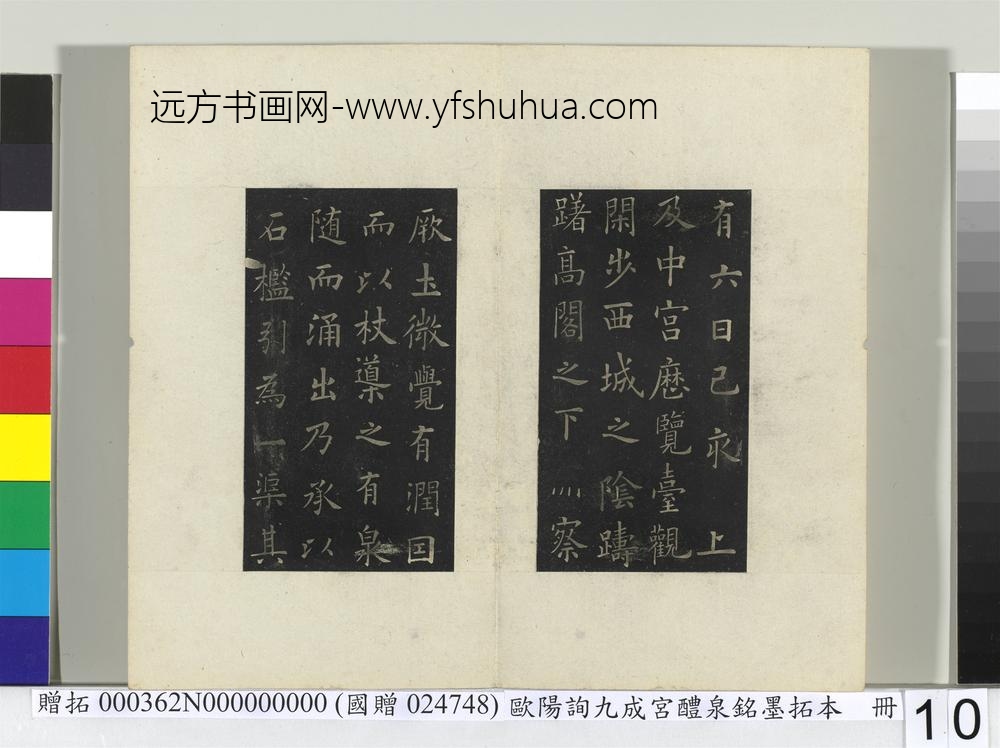 远方书画网-www.yfshuhua.com
有六日己亥上
及中宮歷覽臺觀
閑步西城之陰躊
躇高閣之下察
厥土微覺有潤因
而以杖導之有泉
随而涌出乃承以
石檻引為一渠其
贈拓 000362N000000000 (國贈 024748) 歐陽詢九成宮醴泉銘墨拓本 冊 10